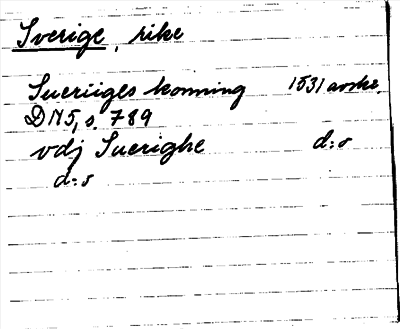 Sverige, rike
Sueriiges konning 1531 avskr.
DN5, s. 789
vdj Suerighe d:o
d:s